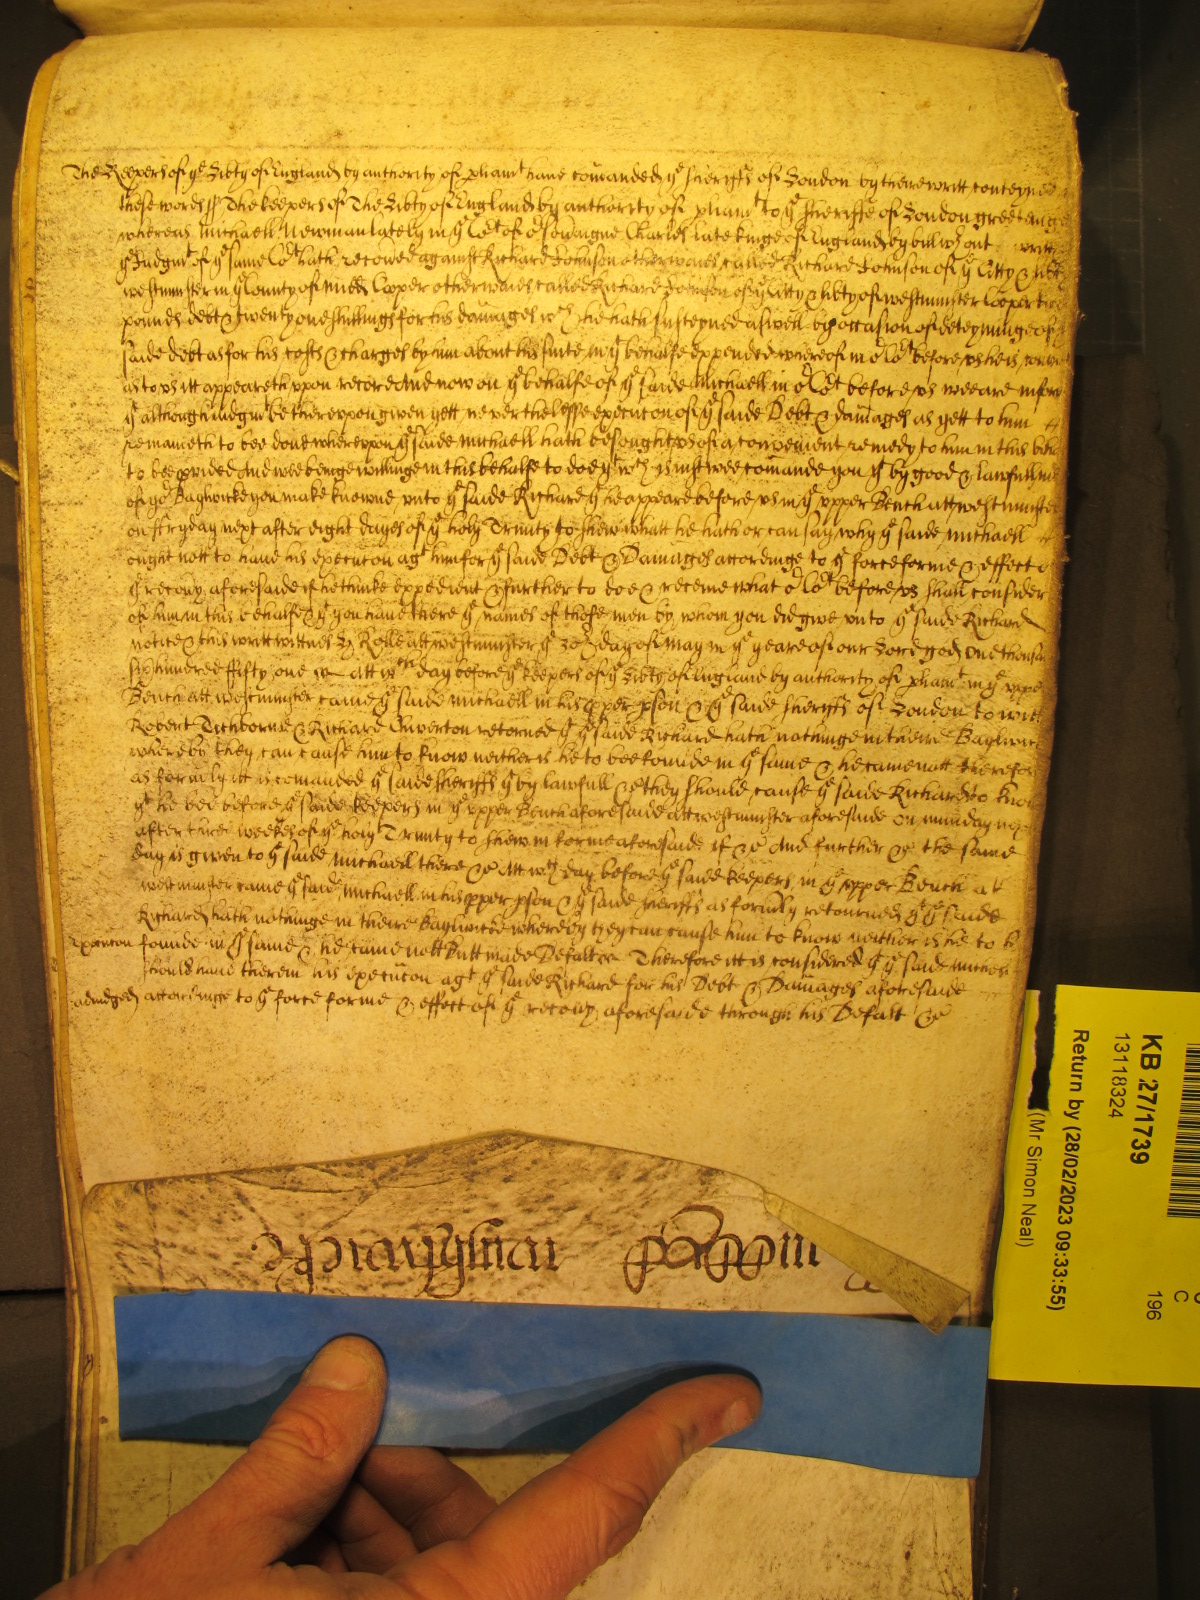 The Keepers of ye Lib'ty of England by authority of parliamt have comanded ye sheriffs of London by theire writt conteyned
these words ss The keepers of The Lib'ty of England by authority of parliamt to ye sheriffe of London greetinge
whereas Michaell Newman lately in ye Cort of or Soveraigne Charles late kinge of England by bill wthout writt
ye Judgmt of ye same Cort hath recoved against Richard Johnson otherwaies called Richard Johnson of ye Citty & lib'ty
westminster in ye County of Midd Cooper otherwaies called Richard Johnson of ye Citty & lib'ty of westminster Cooper
pounds debt & twenty one shillings for his damages wch he hath susteyned aswell by occasion of deteyninge of
saide debt as for his costs & charges by him about his suite in yt behalfe expended whereof in or Cort before us he is
as to us itt appeareth uppon record And now on ye behalfe of ye saide Michaell in or Cort before us wee are
yt although Judgmt be thereuppon given yett neverthelesse execucon of ye saide Debt & damages as yett to him
remaineth to bee done whereuppon ye saide Michaell hath besought us of a convenient remedy to him in this
to bee p'vided And wee beinge willinge in this behalfe to doe yt wch is just wee comande you yt by good & lawfull
of yor Bagliwicke you make knowne unto ye saide Richard yt he appeare before us in ye upper Bench att westminster
on ffryday next after eight dayes of ye holy Trinity to shew what he hath or can say why ye saide Michaell
ought nott to have his execucon agt him for ye saide Debt & Damages accordinge to ye force forme & effect
ye recovy aforesaide if he thinke expedient & further to doe & receive what or Cort before us shall consider
of him in this behalfe & yt you have there ye names of those men by whom you did give unto ye saide Richard
notice & this writt wittnes H Rolle att westminster ye 30th day of may in ye yeare of our Lord god One thousand
six hundred ffifty one att wch day before ye keepers of ye Lib'ty of England by authority of parliamt in ye upper
Bench att westminster came ye saide Michaell in his p'per p'son & ye saide sheriffs of London to witt
Robert Tichborne & Richard Chiverton returned yt ye saide Richard hath nothinge in theire Bagliwicke
whereby they can cause him to know neither is he to bee founde in ye same & he came nott therefore
as form'ly itt is comanded ye saide sheriffs yt by lawfull &c they should cause ye saide Richard to know
yt he bee before ye saide keepers in ye upper Bench aforesaide att westminster aforesaide on munday
after three weekes of ye holy Trinity to shew in forme aforesaide if &c And further &c the same
day is given to ye saide Michaell there &c Att wch day before ye saide keepers in ye upper Bench at
westminster came ye saide Michaell in his p'per p'son & ye saide sheriffs as form'ly returned yt ye saide
Richard hath nothinge in theire Bagliwicke whereby they can cause him to know neither is he to be
Execucon founde in ye same & he came nott butt made Defalte Therefore itt is considered yt ye saide Michaell
should have therein his execucon agt ye saide Richard for his Debt & Damages aforesaide
adiudged accordinge to ye force forme & effect of ye recovy aforesaide through his Defalt &c
KB 27/1739
13118324
Return by (28/02/2023 09:33:55)
(Mr Simon Neal)
C
196